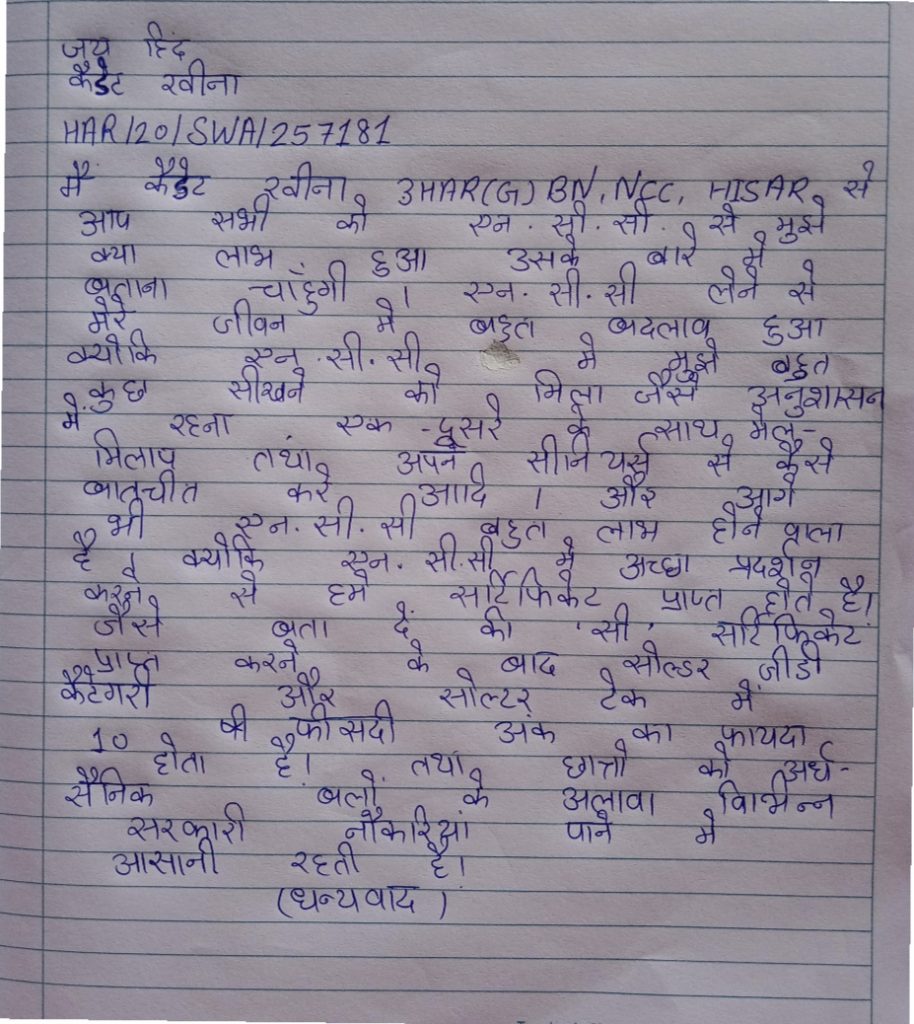 जय हिंद
कैडेट रवीना
HAR/20/SWA/257181
मैं कैडेट रवीना 3HAR(G) BN, NCC, HISAR से
आप सभी को एन.सी.सी. से मुझे
क्या लाभ हुआ उसके बारे मे
बताना चाँहुगी । एन.सी.सी लेने से
मेरे जीवन मे बहुत बदलाव हुआ
क्योकि एन.सी.सी मे मुझे बहुत
कुछ सीखने को मिला जैसे अनुशासन
में रहना एक-दूसरे के साथ मेल-
मिलाप तथा अपने सीनियर्स से कैसे
बातचीत करे आदि । और आगे
भी एन.सी.सी बहुत लाभ होने वाला
है । क्योकि एन.सी.सी मे अच्छा प्रदर्शन
करने से हमे सर्टिफिकेट प्राप्त होते है।
जैसे बता दें की 'सी' सर्टिफिकेट
प्राप्त करने के बाद सोल्डर जीडी
कैटेगरी और सोल्टर टेक में
10 फीसदी अंक का फायदा
होता है। तथा छात्तो को अर्ध-
सैनिक बलों के अलावा विभिन्न
सरकारी नौकरिआं पाने मे
आसानी रहती है।
(धन्यवाद)